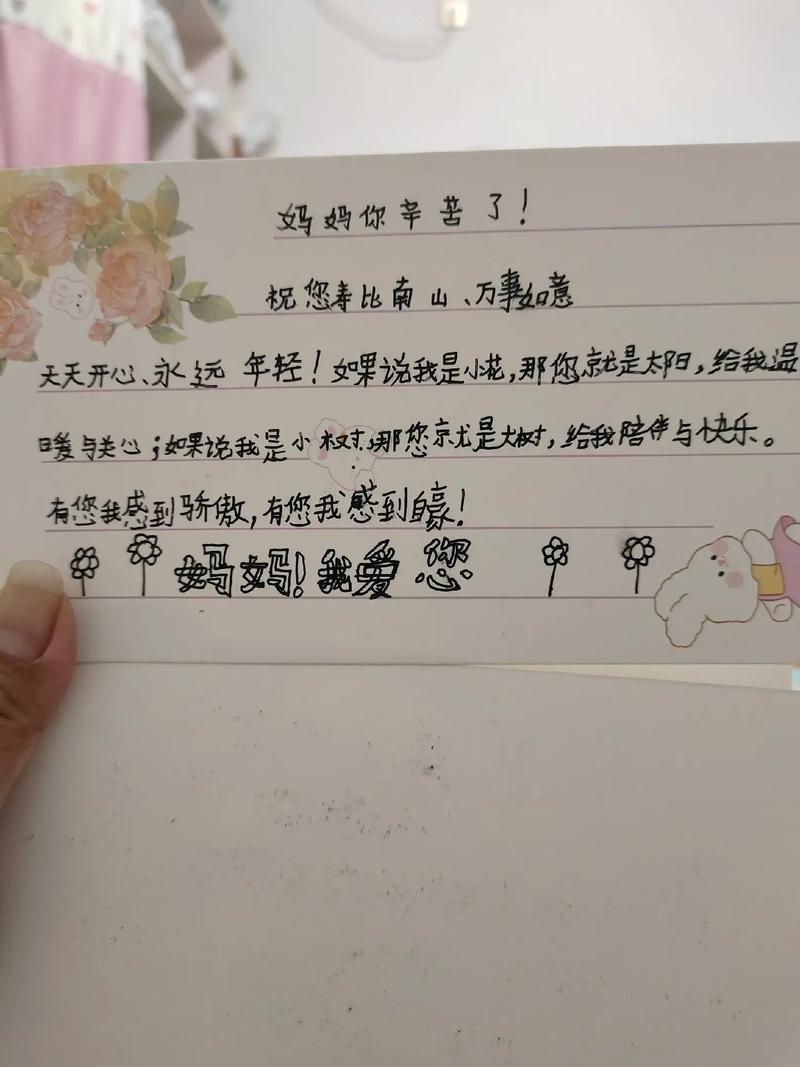 妈妈你辛苦了！
祝您寿比南山、万事如意
天天开心、永远年轻！如果说我是小花，那您就是太阳，给我温
暖与关心；如果说我是小树，那您就是大树，给我陪伴与快乐。
有您我感到骄傲，有您我感到自豪！
妈妈！我爱您